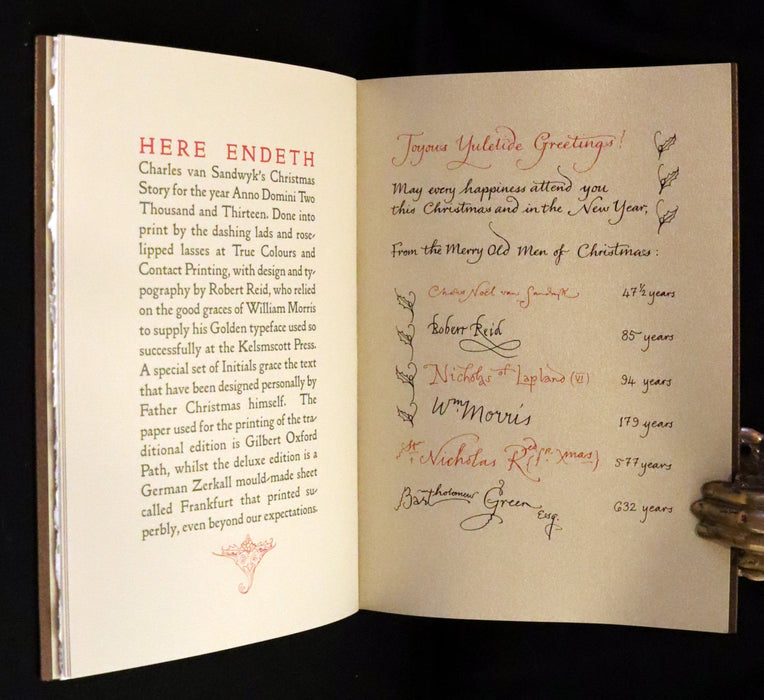 HERE ENDETH
Charles van Sandwyk's Christmas
Story for the year Anno Domini Two
Thousand and Thirteen. Done into
print by the dashing lads and rose-
lipped lasses at True Colours and
Contact Printing, with design and ty-
pography by Robert Reid, who relied
on the good graces of William Morris
to supply his Golden typeface used so
successfully at the Kelsmscott Press.
A special set of Initials grace the text
that have been designed personally by
Father Christmas himself. The
paper used for the printing of the tra-
ditional edition is Gilbert Oxford
Path, whilst the deluxe edition is a
German Zerkall mould-made sheet
called Frankfurt that printed su-
perbly, even beyond our expectations.
Joyous Yuletide Greetings!
May every happiness attend you
this Christmas and in the New Year,
From the Merry Old Men of Christmas:
Noël van Sandwyk 47½ years
Robert Reid 85 years
Nicholas of Lapland (VI) 94 years
Wm Morris 179 years
St. Nicholas Red (Fr. Xmas) 577 years
Bartholomew Green Esq. 632 years